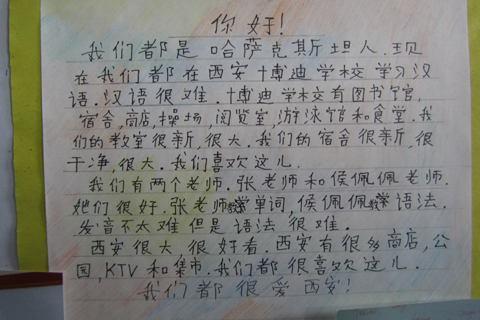 你好!
我们都是哈萨克斯坦人.现
在我们都在西安博迪学校学习汉
语.汉语很难.博迪学校有图书馆,
宿舍,商店,操场,阅览室,游泳馆和食堂.我
们的教室很新,很大.我们的宿舍很新,很
干净,很大.我们喜欢这儿.
我们有两个老师.张老师和侯佩佩老师.
她们很好.张老师教单词,侯佩佩教语法.
发音不太难但是语法很难.
西安很大很好看.西安有很多商店,公
园,KTV和集市.我们都很喜欢这儿.
我们都很爱西安!